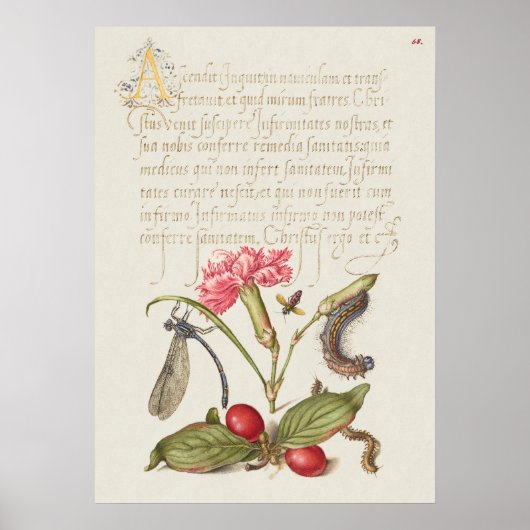 68.
Ascendit Inquit in nauiculam, et trans,
fretauit, et quid mirum fratres. Chri,
stus venit suscipere Infirmitates nostras, et
sua nobis conferre remedia sanitatis: quia
medicus qui non infert sanitatem, Infirmi
tates curare nescit, et qui non fuerit cum
infirmo. Infirmatus infirmo non potest
conferre sanitatem. Christus ergo et c.